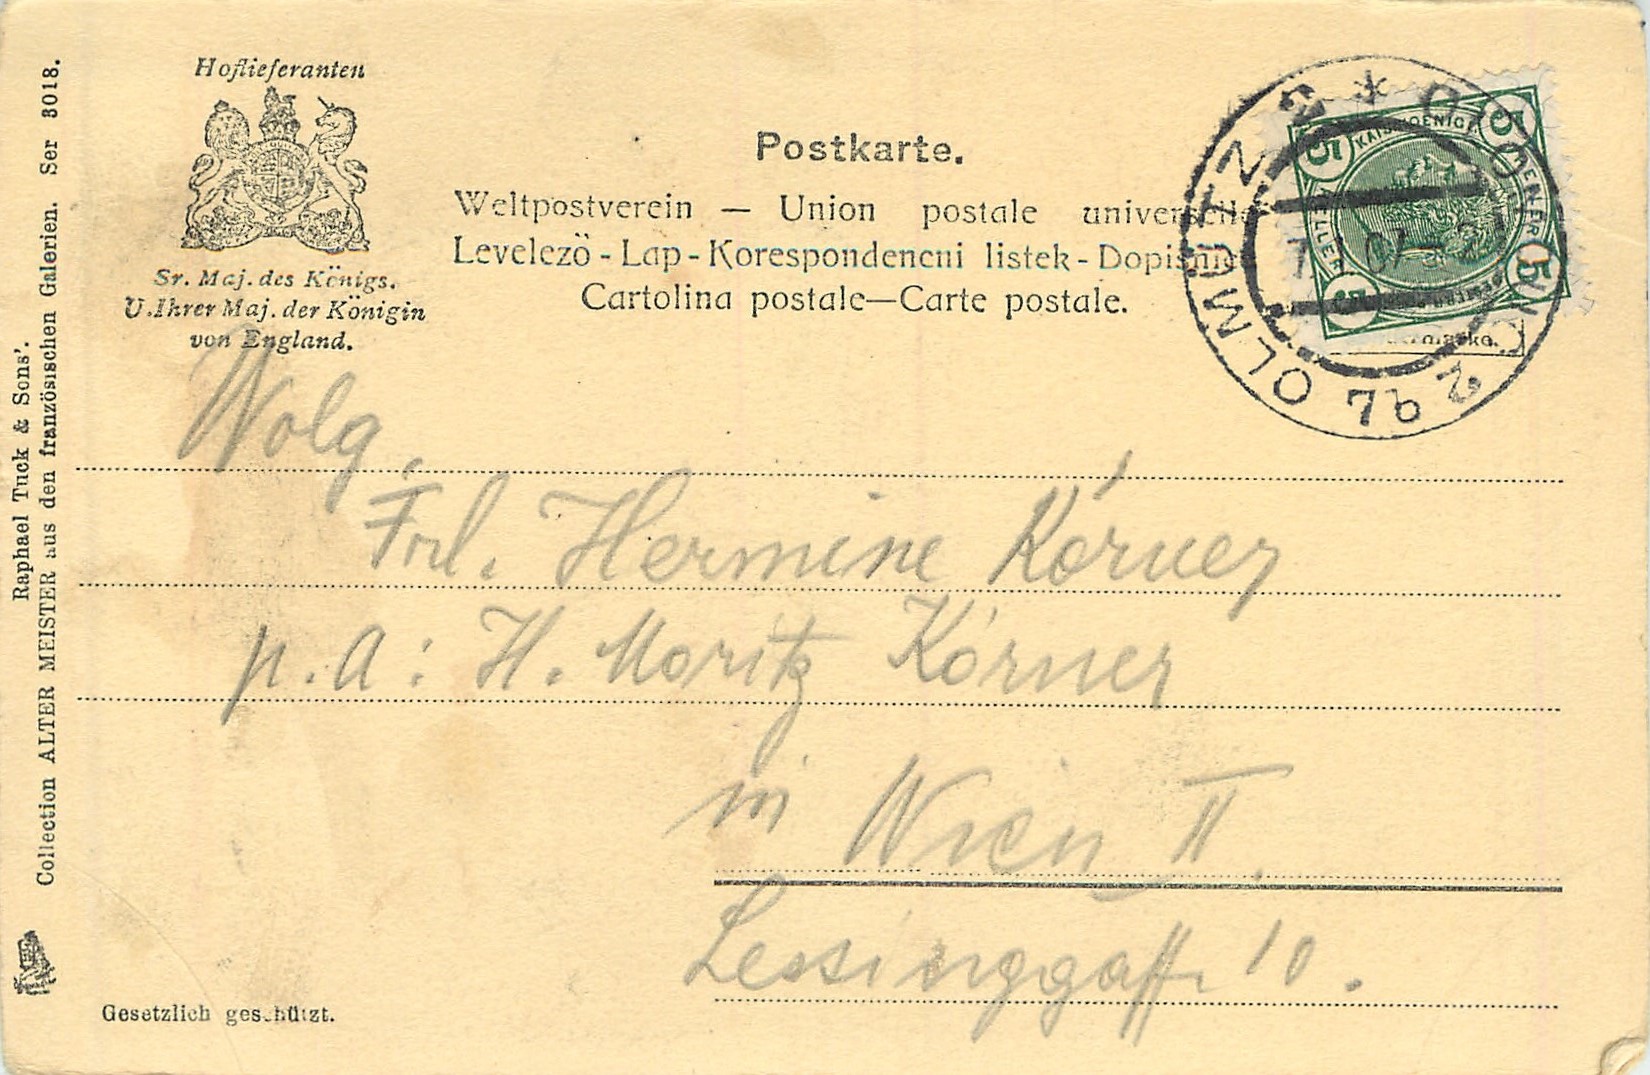 Hoflieferanten
Sr. Maj. des Königs.
U. Ihrer Maj. der Königin
von England.
Postkarte.
Weltpostverein — Union postale universelle
Levelezö - Lap - Korespondencni listek - Dopisnica
Cartolina postale—Carte postale.
OLMÜTZ 2
OLOMOUC 2
7b
5
5
5
5
Wolg.
Frl. Hermine Körner
p. A: H. Moritz Körner
in Wien II.
Lessinggasse 10.
Gesetzlich geschützt.
Raphael Tuck & Sons'.
Collection ALTER MEISTER aus den französischen Galerien. Ser 8018.